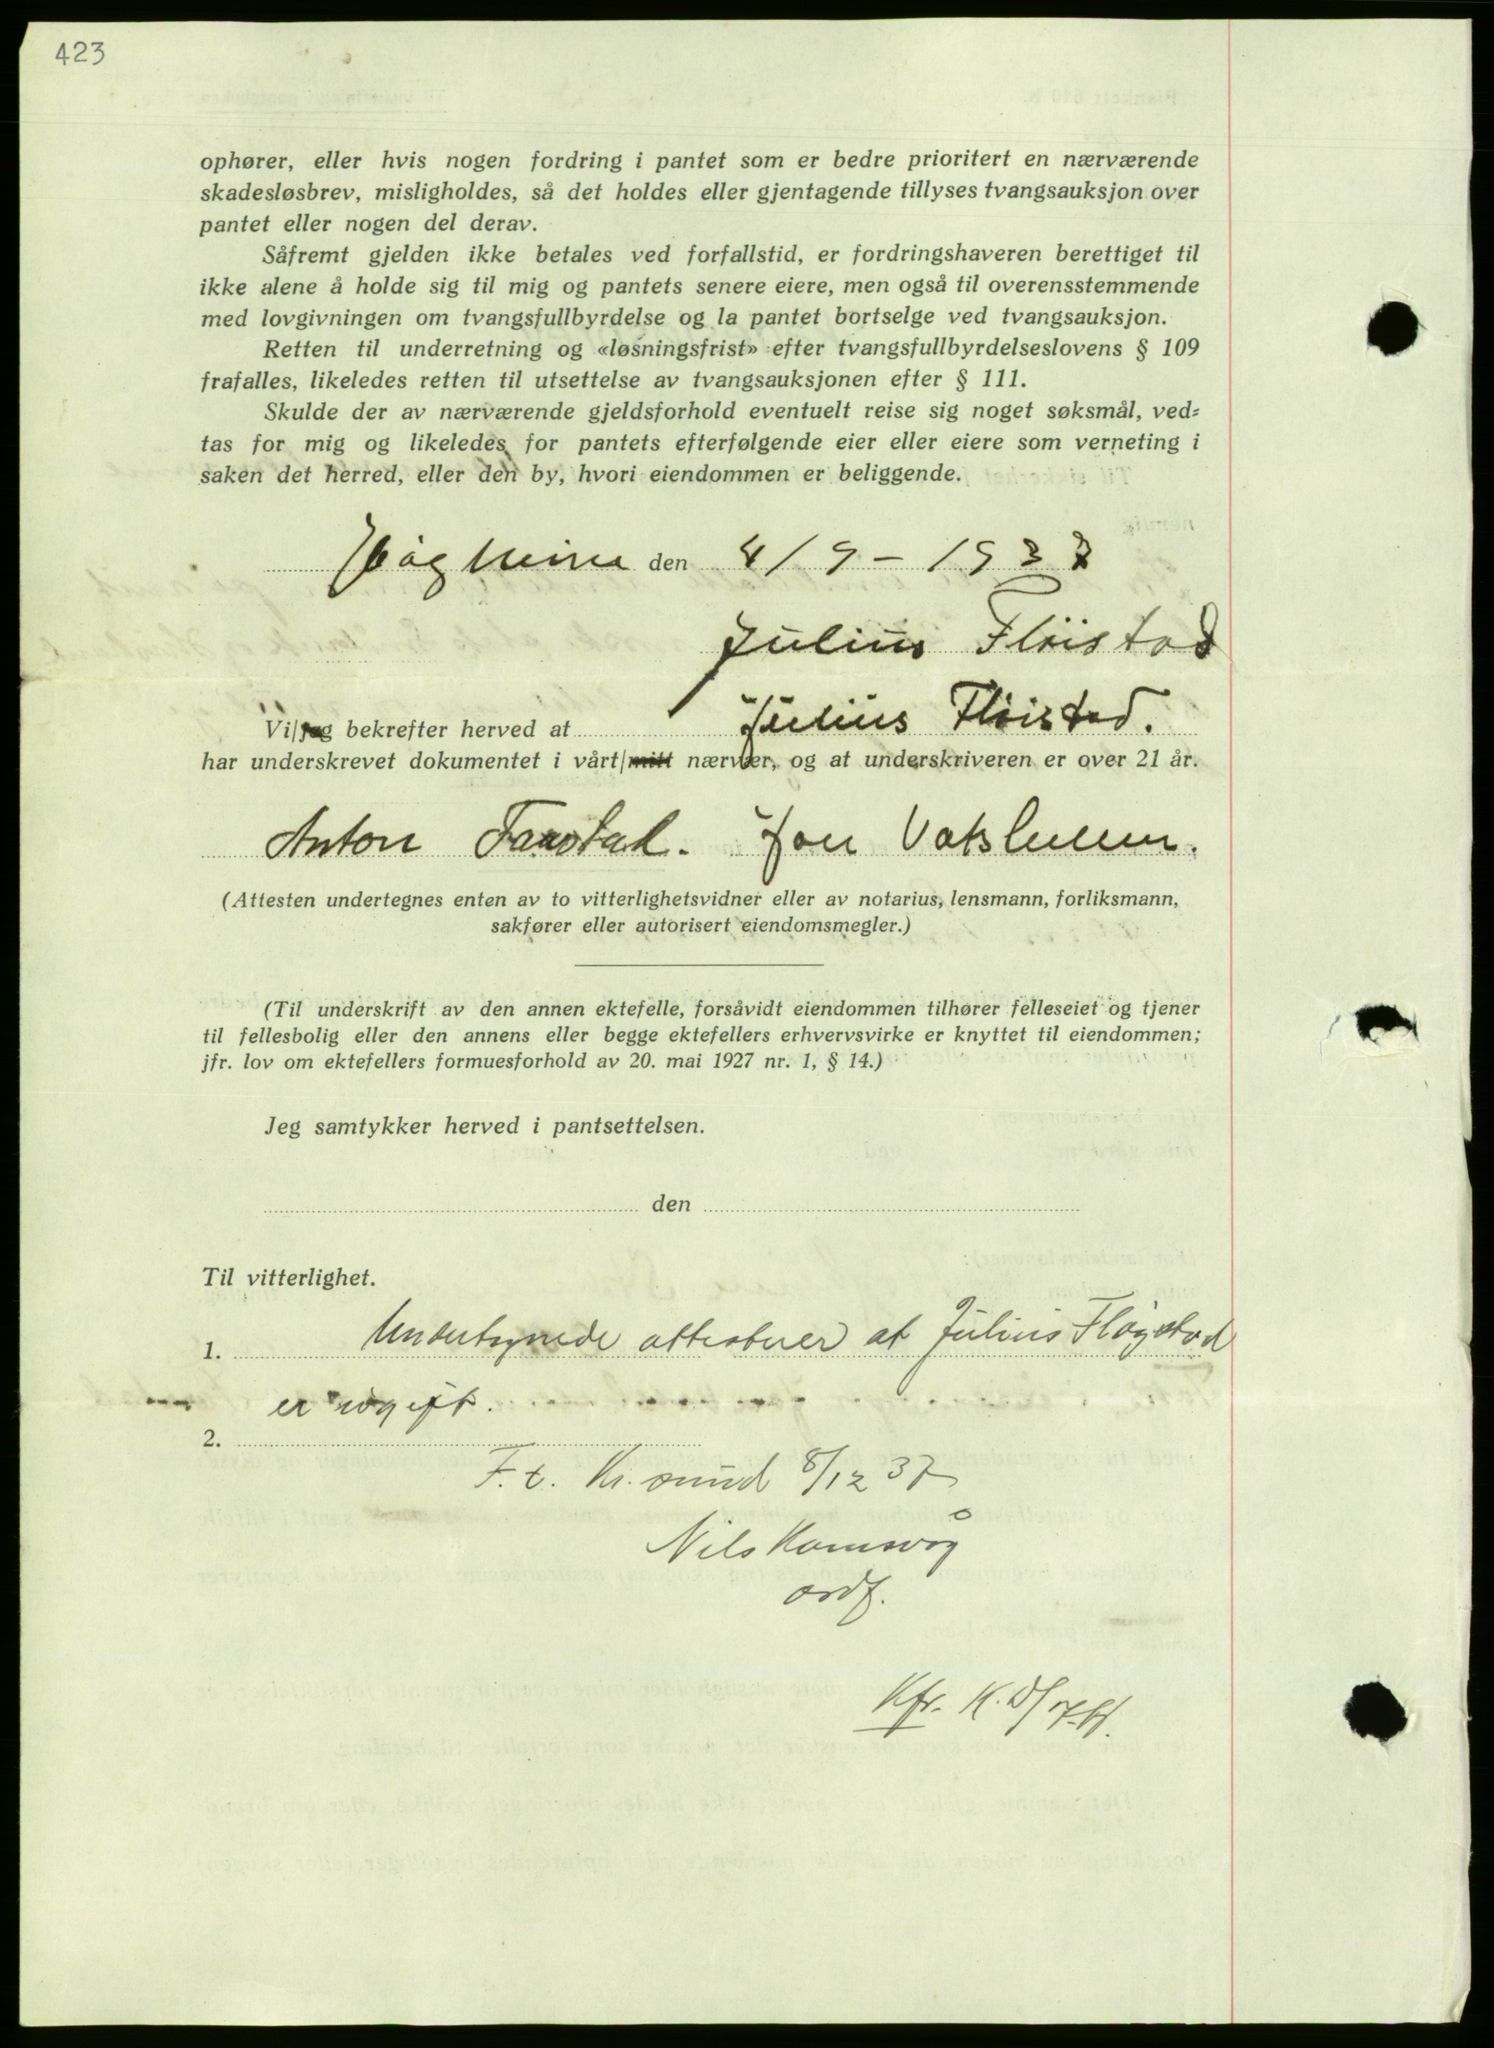 423
ophører, eller hvis nogen fordring i pantet som er bedre prioritert en nærværende
skadesløsbrev, misligholdes, så det holdes eller gjentagende tillyses tvangsauksjon over
pantet eller nogen del derav.
Såfremt gjelden ikke betales ved forfallstid, er fordringshaveren berettiget til
ikke alene å holde sig til mig og pantets senere eiere, men også til overensstemmende
med lovgivningen om tvangsfullbyrdelse og la pantet bortselge ved tvangsauksjon.
Retten til underretning og «løsningsfrist» efter tvangsfullbyrdelseslovens § 109
frafalles, likeledes retten til utsettelse av tvangsauksjonen efter § 111.
Skulde der av nærværende gjeldsforhold eventuelt reise sig noget søksmål, ved-
tas for mig og likeledes for pantets efterfølgende eier eller eiere som verneting i
saken det herred, eller den by, hvori eiendommen er beliggende.
den 4/9 - 1937
Julius Fløistad
Vi/jeg bekrefter herved at Julius Fløistad.
har underskrevet dokumentet i vårt/mitt nærvær, og at underskriveren er over 21 år.
Anton Jon
(Attesten undertegnes enten av to vitterlighetsvidner eller av notarius, lensmann, forliksmann,
sakfører eller autorisert eiendomsmegler.)
(Til underskrift av den annen ektefelle, forsåvidt eiendommen tilhører felleseiet og tjener
til fellesbolig eller den annens eller begge ektefellers erhvervsvirke er knyttet til eiendommen;
jfr. lov om ektefellers formuesforhold av 20. mai 1927 nr. 1, § 14.)
Jeg samtykker herved i pantsettelsen.
den
Til vitterlighet.
1. Undertegnede attesterer at Julius Fløystad
er ugift.
2.
F.t. Kr.sund 8/12 37
Nils Kornsvåg
ordf.
Kfr.